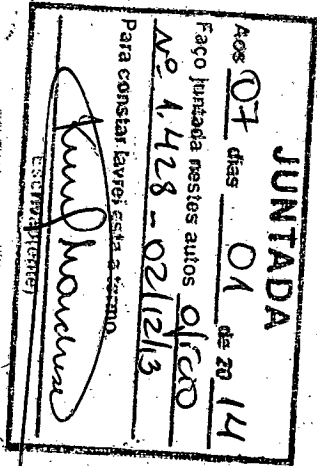 JUNTADA
Aos 07 dias 01 de 20 14
Faço juntada nestes autos Ofício
Nº 1.428 - 02/12/13
Para constar lavrei este termo